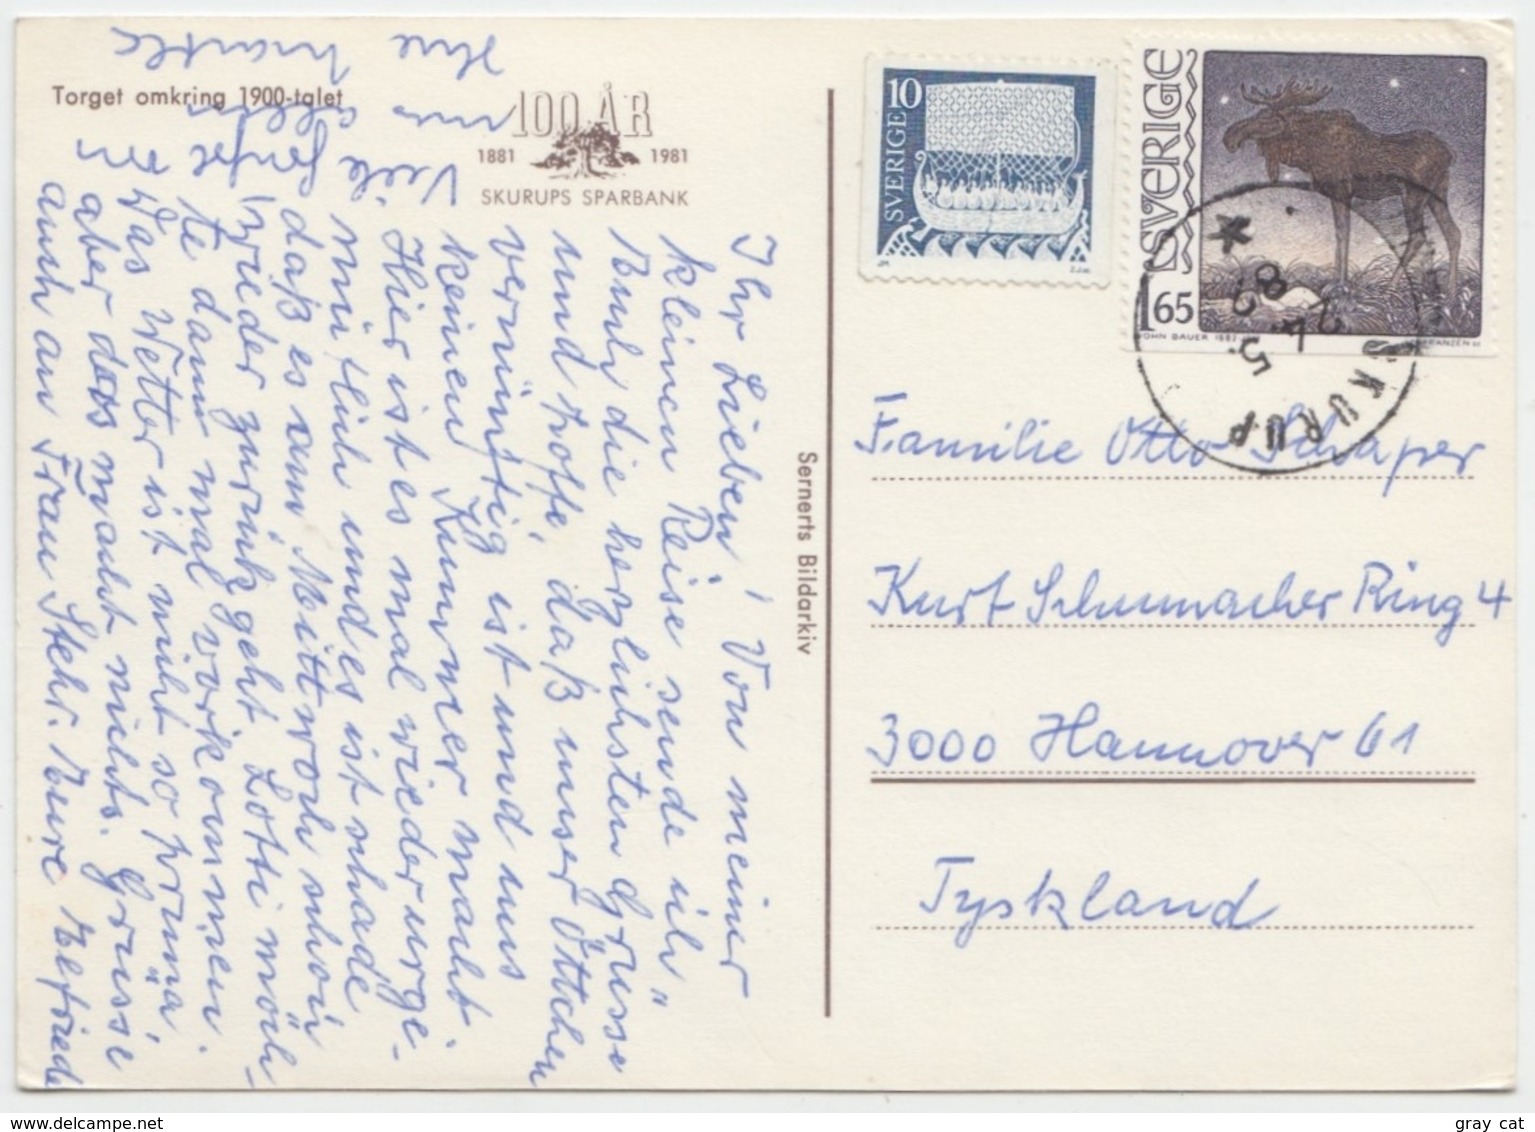 Torget omkring 1900-talet
100 ÅR
1881 1981
SKURUPS SPARBANK
Ihr Lieben! Von meiner
kleinen Reise sende ich
Euch die herzlichsten Grüsse
und hoffe, daß unser Öttchen
vernünftig ist und uns
keinen Kummer macht.
Hier ist es mal wieder urge-
mütlich und es ist schade
daß es am Mittwoch schon
wieder zurück geht. Lotti möch-
te dann mal vorkommen.
Das Wetter ist nicht so prima,
aber das macht nichts. Grüsse
auch an Frau Stehr. Eure Elfriede
Viele
Sernerts Bildarkiv
SVERIGE 10
SVERIGE
165
JOHN BAUER 1882
SKURUP
5 4 82
Familie Otto Schaper
Kurt Schumacher Ring 4
3000 Hannover 61
Tyskland
www.delcampe.net
gray cat